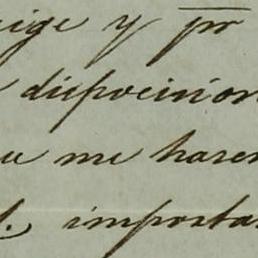 eige y pr
dispocicion
me hacen
importa